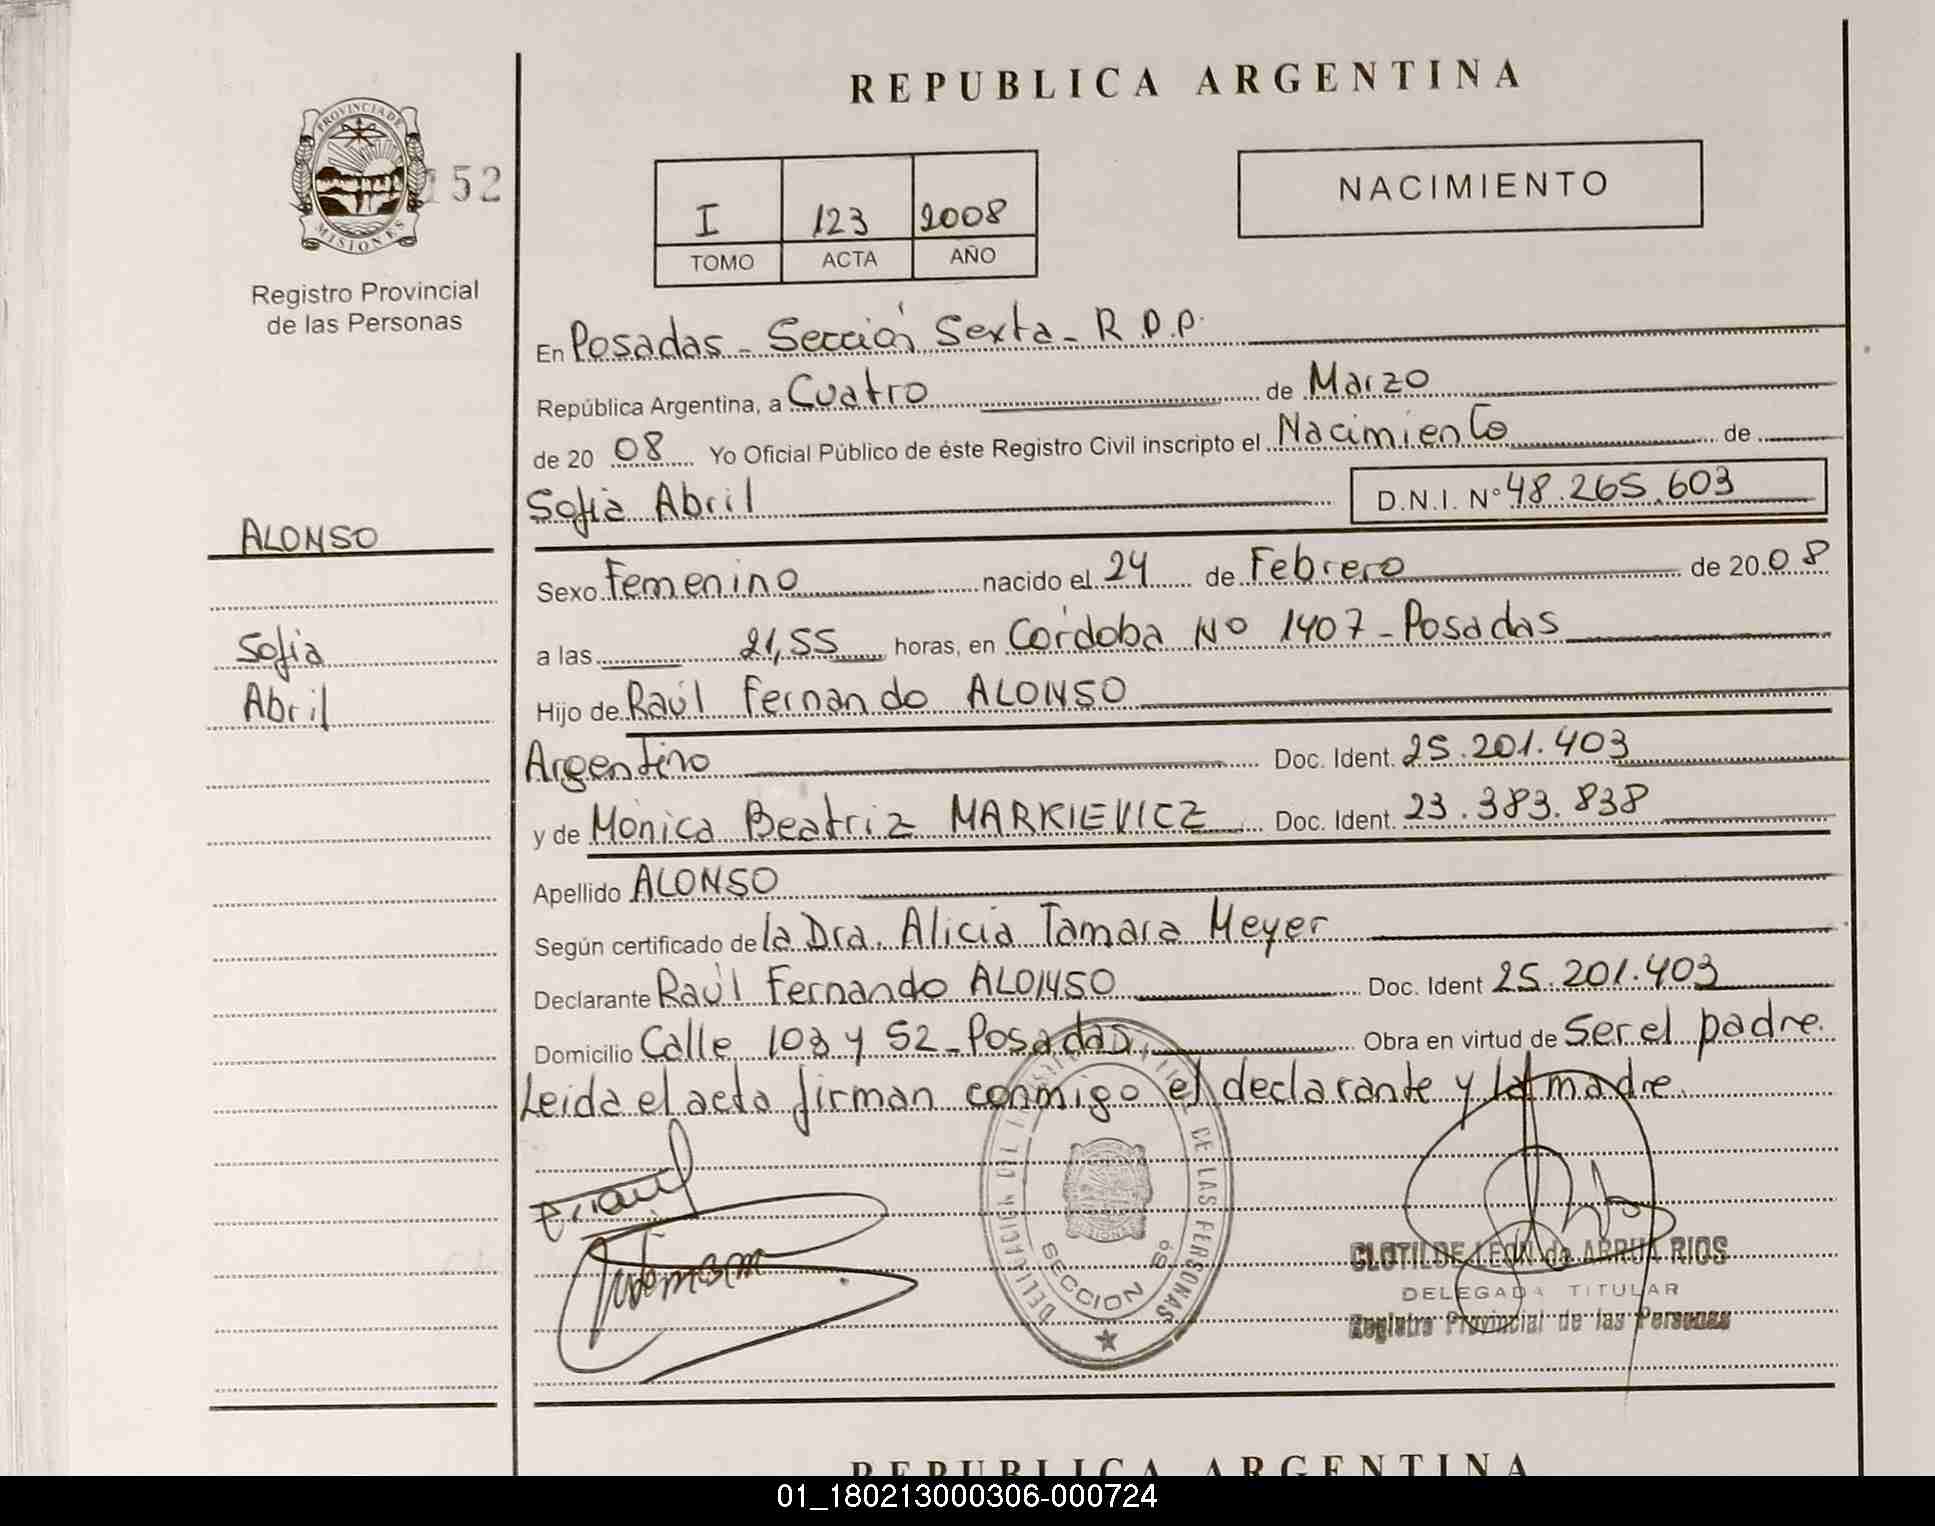 REPUBLICA ARGENTINA
PROVINCIA DE MISIONES
152
Registro Provincial
de las Personas
NACIMIENTO
I 123 2008
TOMO ACTA AÑO
En Posadas - Sección Sexta - R.P.P.
República Argentina, a Cuatro de Marzo
de 2008 Yo Oficial Público de éste Registro Civil inscripto el Nacimiento de
Sofia Abril D.N.I. N° 48.265.603
ALONSO
Sofia
Abril
Sexo Femenino nacido el 24 de Febrero de 2008
a las 21,55 horas, en Córdoba No 1407 - Posadas
Hijo de Raúl Fernando ALONSO
Argentino Doc. Ident. 25.201.403
y de Mónica Beatriz MARKIEVICZ Doc. Ident. 23.383.838
Apellido ALONSO
Según certificado de la Dra. Alicia Tamara Meyer
Declarante Raúl Fernando ALONSO Doc. Ident 25.201.403
Domicilio Calle 108 y 52 - Posadas Obra en virtud de Ser el padre.
Leida el acta firman conmigo el declarante y la madre
DE LAS PERSONAS
SECCION
CLOTILDE LEON de ARRUA RIOS
DELEGADA TITULAR
Registro Provincial de las Personas
REPUBLICA ARGENTINA
01_180213000306-000724